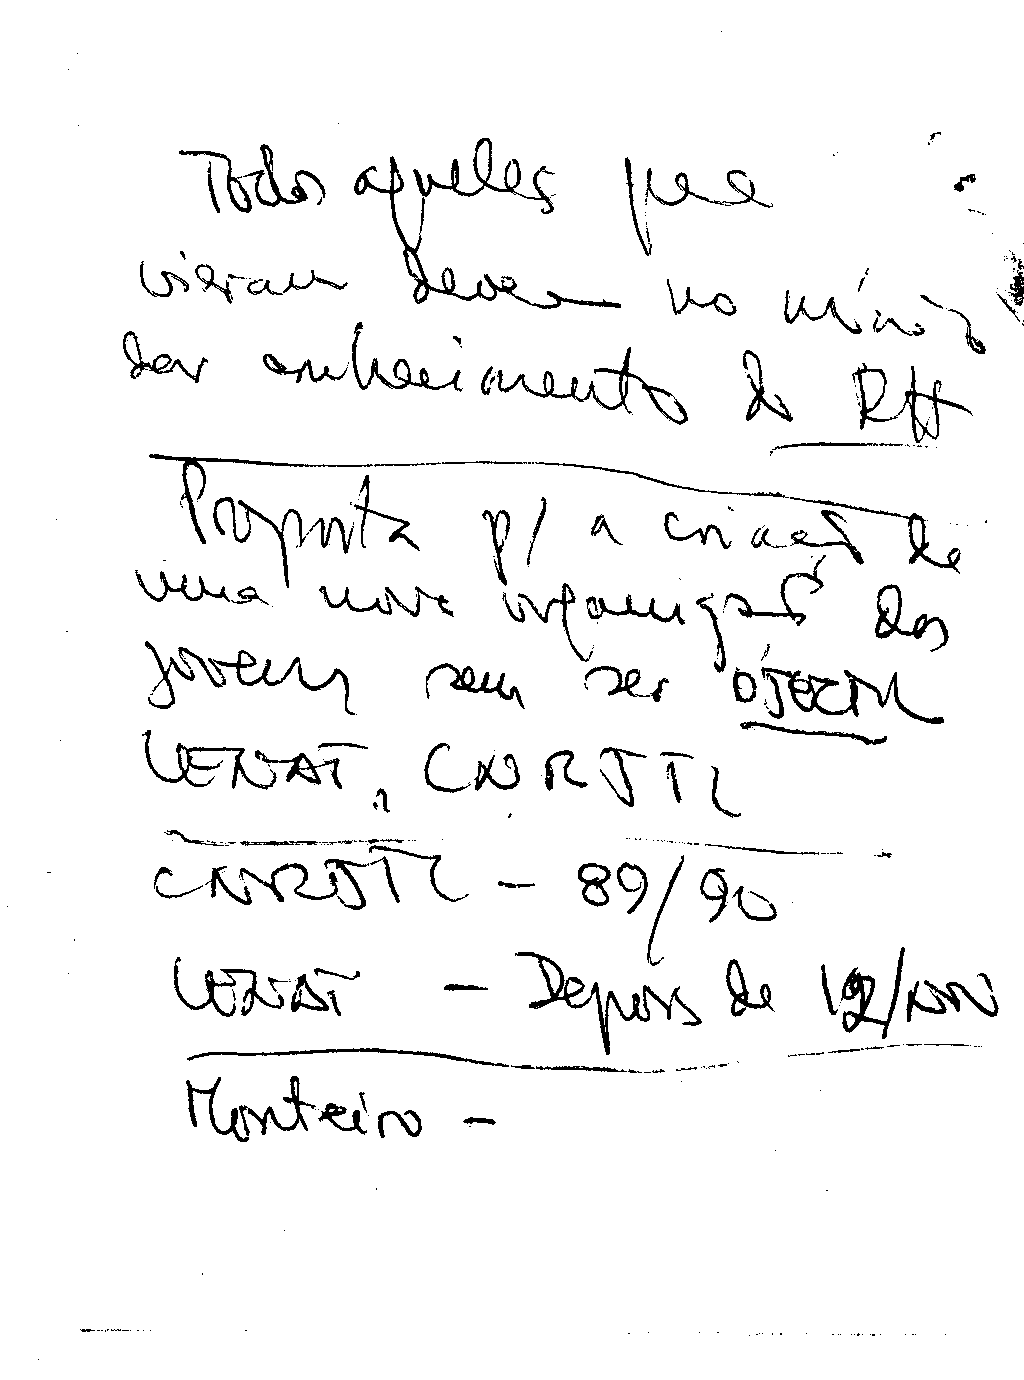 Todos aqueles que
vieram devem no mínimo
dar conhecimento do RH
Proposta p/ a criação de
uma nova organização dos
jovens sem ser OJECTIL
LENAT, CNRJTL
CNRJTL - 89/90
LENAT - Depois de 12/NOV
Monteiro -